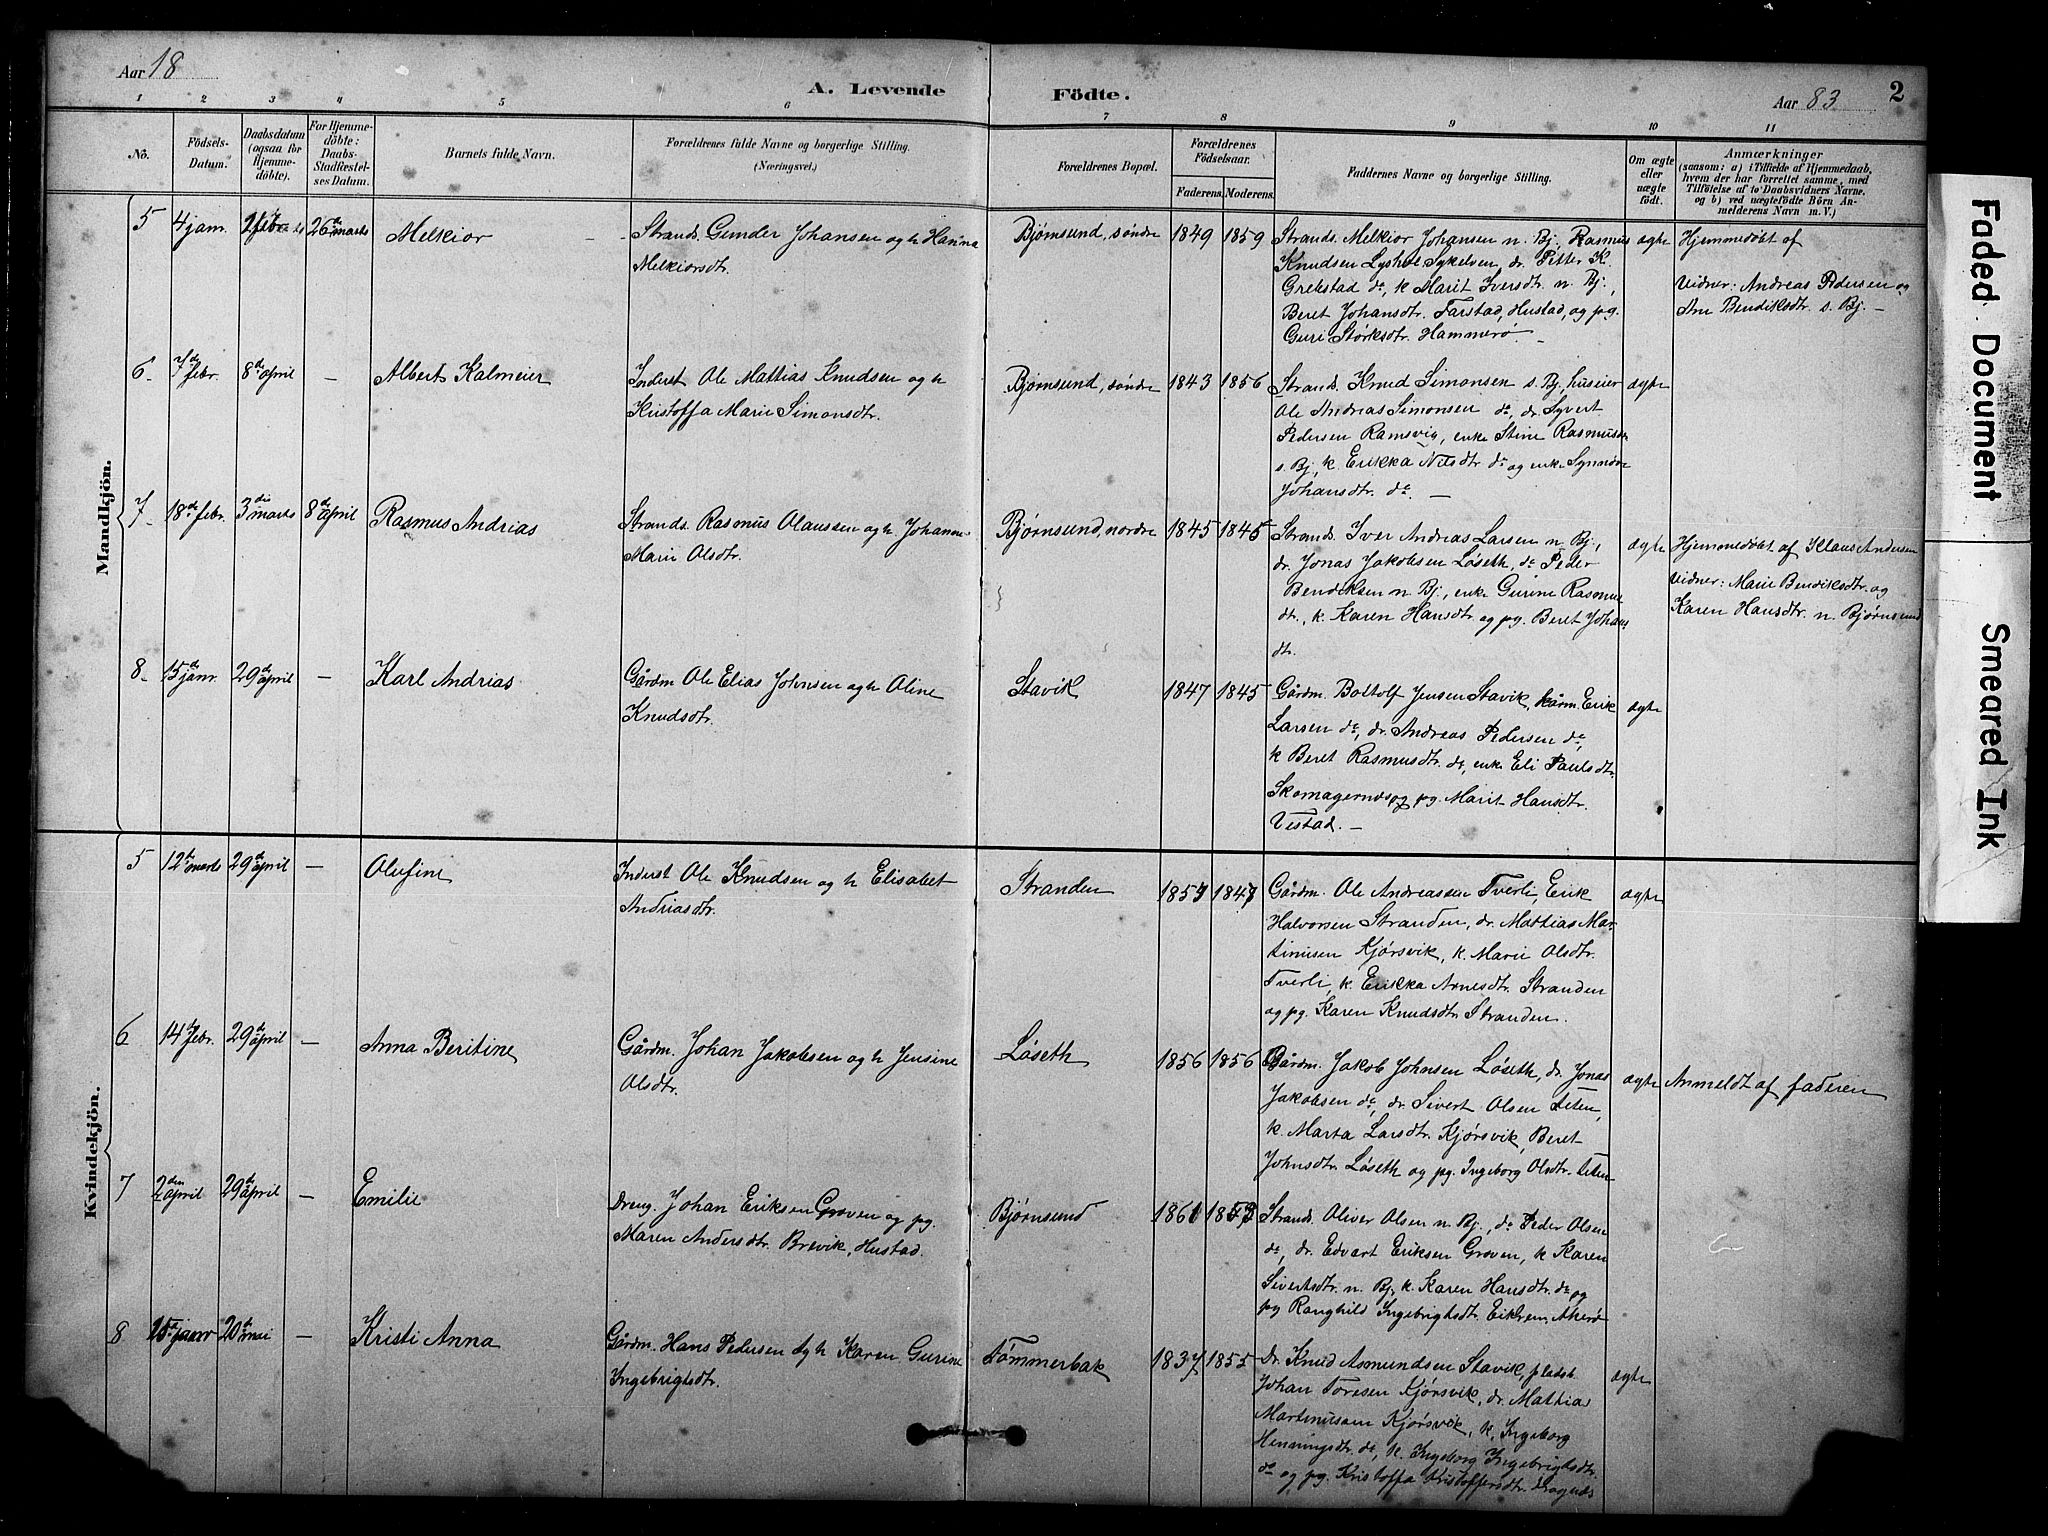 Aar 18
A. Levende
Födte.
Aar 83
2
1 2 3 4 5 6 7 8 9 10 11
No.
Födsels-
Datum.
Daabsdatum
(ogsaa for
Hjemme-
döbte).
For Hjemme-
döbte:
Daabs-
Stadfæstel-
ses Datum.
Barnets fulde Navn.
Forældrenes fulde Navne og borgerlige Stilling.
(Næringsvei.)
Forældrenes Bopæl.
Forældrenes
Födselsaar.
Faderens. Moderens.
Faddernes Navne og borgerlige Stilling.
Om ægte
eller
uægte
födt.
Anmærkninger
(saasom: a) i Tilfælde af Hjemmedaab,
hvem der har forrettet samme, med
Tilföielse af to Daabsvidners Navne,
og b) ved uægtefödte Börn An-
melderens Navn m. V.)
Mandkjön.
5 4 janr. 26de marts
Melkior
Strands. Gunder Johansen og h Hanna
Melkiorsdtr.
Bjørnsund, søndre 1849 1859
Strands. Melkior Johansen n. Bj., Rasmus
Knudsen Lyshol Sykelven, dr. Petter K.
Grebstad do, k Marit Iversdtr. n. Bj.,
Beret Johansdtr. Farstad, Hustad, og pg.
Guri Størksdtr. Hammerø. —
ægte
Hjemmedøbt af
Vidner: Andreas Pedersen og
Ane Bendiksdtr. s. Bj. —
6 7de febr. 8de april —
Albert Kalmeier
Inderst Ole Mattias Knudsen og h
Kristoffa Marie Simonsdtr.
Bjørnsund, søndre 1843 1856
Strands. Knud Simonsen s. Bj. huseier
Ole Andreas Simonsen do, dr. Syvert
Pedersen Ramsvig, enke Stine Rasmusdr
s. Bj., k. Erikka Nilsdtr do og enke Synnøve
Johansdtr. do. —
ægte
7 18de febr. 3die marts 8de april
Rasmus Andrias
Strands. Rasmus Olaussen og h. Johanne
Marie Olsdtr.
Bjørnsund, nordre 1845 1845
Strands. Iver Andreas Larsen n. Bj.,
dr. Jonas Jakobsen Løseth, do Peder
Bendiksen n Bj., enke Gurine Rasmus
dtr., k. Karen Hansdtr og pg. Beret Johans
dtr.
ægte
Hjemmedøbt af Klaus Andersen
Vidner: Marie Bendiksdtr. og
Karen Hansdtr. n. Bjørnsund
8 15de janr. 29de april —
Karl Andrias
Gårdm Ole Elias Johnsen og h Oline
Knudsdtr.
Stavik 1847 1845
Gårdm. Bottolf Jensen Stavik, kårm. Erik
Larsen do, dr. Andreas Pedersen do,
k Beret Rasmusdtr. do, enke Eli Paulsdtr.
Skomagernes og pg. Marit Hansdtr.
Vestad. —
ægte
Kvindekjön.
5 12te marts 29de april —
Olufine
Inderst Ole Knudsen og h Elisabet
Andriasdtr.
Stranden
Gårdm. Ole Andreassen Tverli, Erik
Halvorsen Stranden, dr. Mattias Mar-
tinusen Kjørsvik, k. Marie Olsdtr.
Tverli, k. Erikka Arnesdtr. Stranden
og pg. Karen Knudsdtr Stranden.
ægte
6 14de febr. 29de april —
Anna Beritine
Gårdm. Johan Jakobsen og h Jensine
Olsdtr.
Løseth 1856 1856
Gårdm. Jakob Johnsen Løseth, dr. Jonas
Jakobsen do, dr. Sivert Olsen
k. Marta Larsdtr. Kjørsvik, Beret
Johnsdtr. Løseth og pg. Ingeborg Olsdtr.
ægte
Anmeldt af faderen
7 2den april 29de april —
Emilie
Dreng. Johan Eriksen Groven og pg.
Maren Andersdtr. Brevik, Hustad.
Bjørnsund 1861
Strands. Oliver Olsen n. Bj., do Peder Olsen
do, dr. Edvart Eriksen Groven, k Karen
Sivertsdtr. n. Bj., k. Karen Hansdtr. do og
pg Ranghild Ingebrigtsdtr. Eikrem, Akerø
8 15de janr 20de mai —
Kristi Anna
Gårdm. Hans Pedersen og h Karen Gurine
Ingebrigtsdtr.
Tømmerbak 1837 1855
Dr. Knud Asmundsen Stavik, pladsb.
Johan Toresen Kjørsvik, dr. Mattias
Martinussen Kjørsvik, k. Ingeborg
Henningsdtr. do, k. Ingeborg Ingebrigtsdtr.
do og pg. Kristoffa Kristoffersdtr.
ægte
Faded Document
Smeared Ink